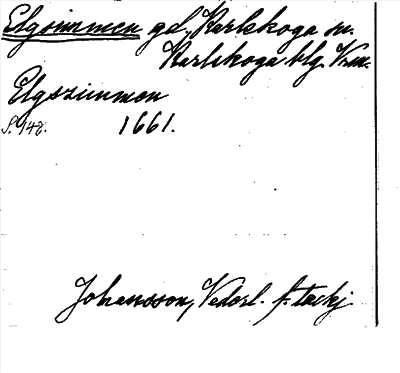 Elgsimmen gd, Karlskoga sn.
Karlskoga blg. Vrm.
Elgszimmen
S. 148. 1661.
Johansson, Vedorl. f. tackj.